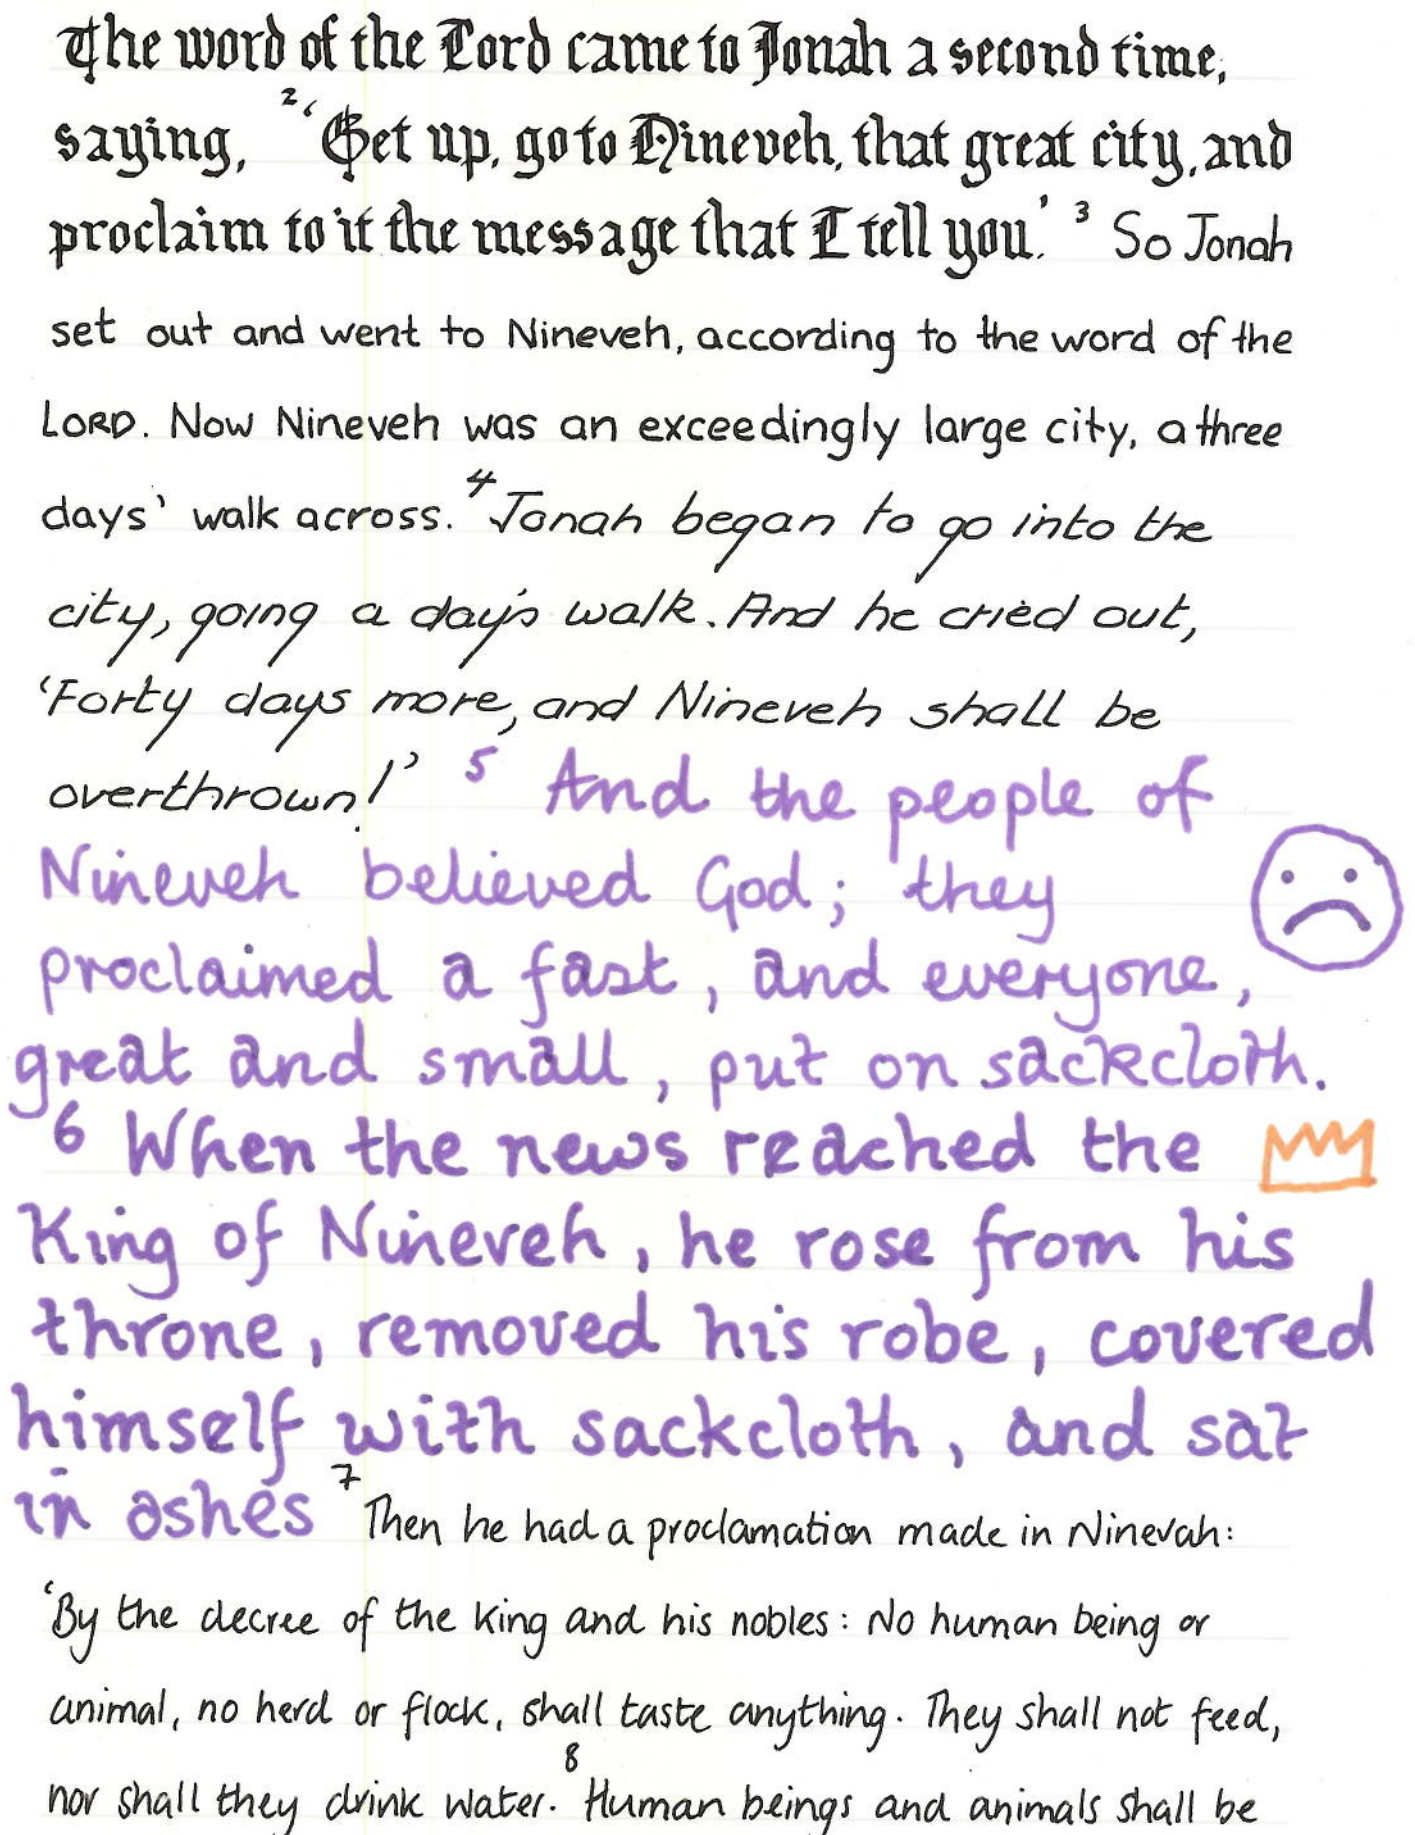 The word of the Lord came to Jonah a second time,
saying, 2 ‘Get up, go to Nineveh, that great city, and
proclaim to it the message that I tell you.’ 3 So Jonah
set out and went to Nineveh, according to the word of the
LORD. Now Nineveh was an exceedingly large city, a three
days’ walk across. 4 Jonah began to go into the
city, going a day's walk. And he cried out,
‘Forty days more, and Nineveh shall be
overthrown!’ 5 And the people of
Nineveh believed God; they
proclaimed a fast, and everyone,
great and small, put on sackcloth.
6 When the news reached the
King of Nineveh, he rose from his
throne, removed his robe, covered
himself with sackcloth, and sat
in ashes 7 Then he had a proclamation made in Ninevah:
‘By the decree of the King and his nobles: No human being or
animal, no herd or flock, shall taste anything. They shall not feed,
nor shall they drink water. 8 Human beings and animals shall be